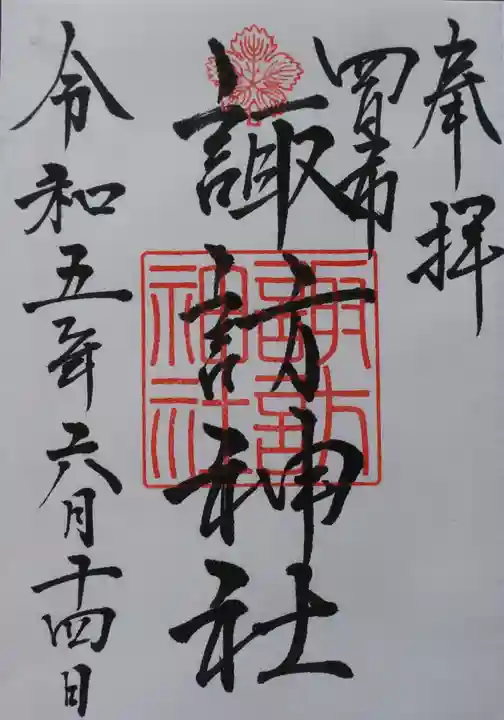 奉拝
四日市
諏訪神社
諏訪
神社
令和五年六月十四日